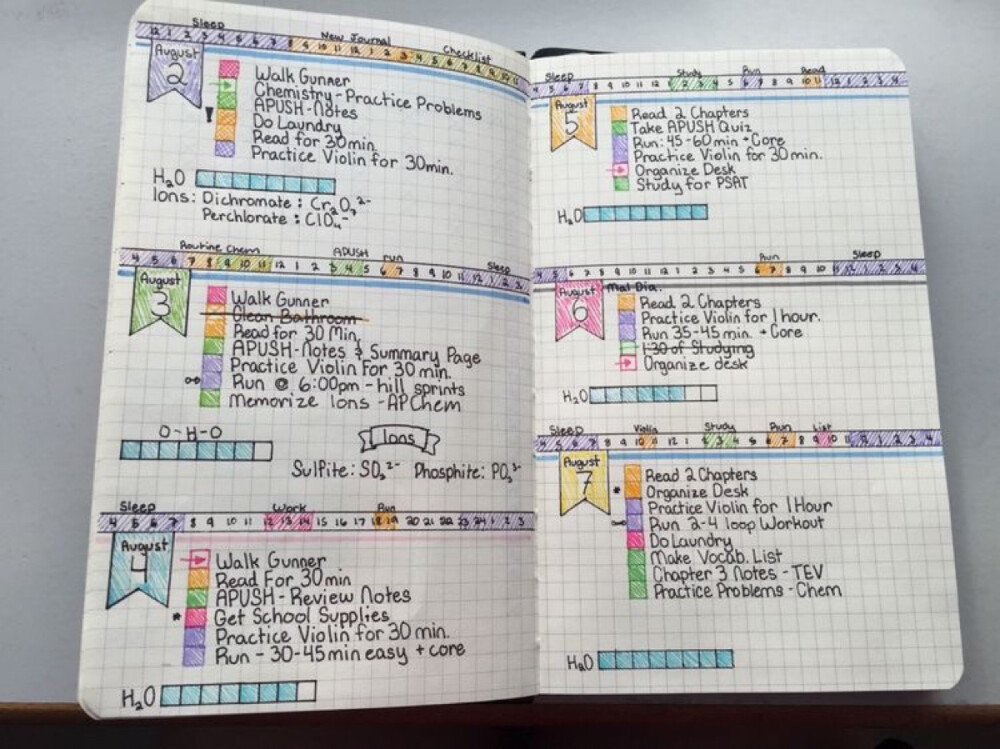 Sleep New Journal Checklist
12 1 2 3 4 5 6 7 8 9 10 11 12 1 2 3 4 5 6 7 8 9 10 11
August
2
Walk Gunner
Chemistry - Practice Problems
APUSH-Notes
! Do Laundry
Read for 30min
Practice Violin for 30min.
H₂O
Ions: Dichromate: Cr₂O₇²⁻
Perchlorate: ClO₄⁻
Routine Chem APUSH run Sleep
4 5 6 7 8 9 10 11 12 1 2 3 4 5 6 7 8 9 10 11 12 1 2 3
August
3
Walk Gunner
Clean Bathroom
Read for 30 Min
APUSH-Notes & Summary Page
Practice Violin for 30 min.
Run @ 6:00pm - hill sprints
Memorize Ions - AP Chem
O-H-O
Ions
Sulfite: SO₃²⁻ Phosphite: PO₃³⁻
Sleep Work Run
4 5 6 7 8 9 10 11 12 13 14 15 16 17 18 19 20 21 22 23 24 1 2 3
August
4
Walk Gunner
Read For 30 min
APUSH - Review Notes
* Get School Supplies
Practice Violin for 30 min.
Run - 30-45min easy + core
H₂O
Sleep Study Run Read
4 5 6 7 8 9 10 11 12 1 2 3 4 5 6 7 8 9 10 11 12 1 2 3 4
August
5
Read 2 Chapters
Take APUSH Quiz
Run: 45-60min + Core
Practice Violin for 30min.
Organize Desk
Study for PSAT
H₂O
Run Sleep
4 5 6 7 8 9 10 11 12 1 2 3 4 5 6 7 8 9 10 11 12 1 2 3 4
August
6
Mal Dia.
Read 2 Chapters
Practice Violin for 1 hour.
Run 35-45 min. + Core
1:30 of Studying
Organize desk
H₂O
Sleep Violin Study Run List
4 5 6 7 8 9 10 11 12 1 2 3 4 5 6 7 8 9 10 11 12 1 2 3 4
August
7
Read 2 Chapters
* Organize Desk
Practice Violin for 1 Hour
Run 2-4 loop Workout
Do Laundry
Make Vocab. List
Chapter 3 Notes - TEV
Practice Problems - Chem
H₂O